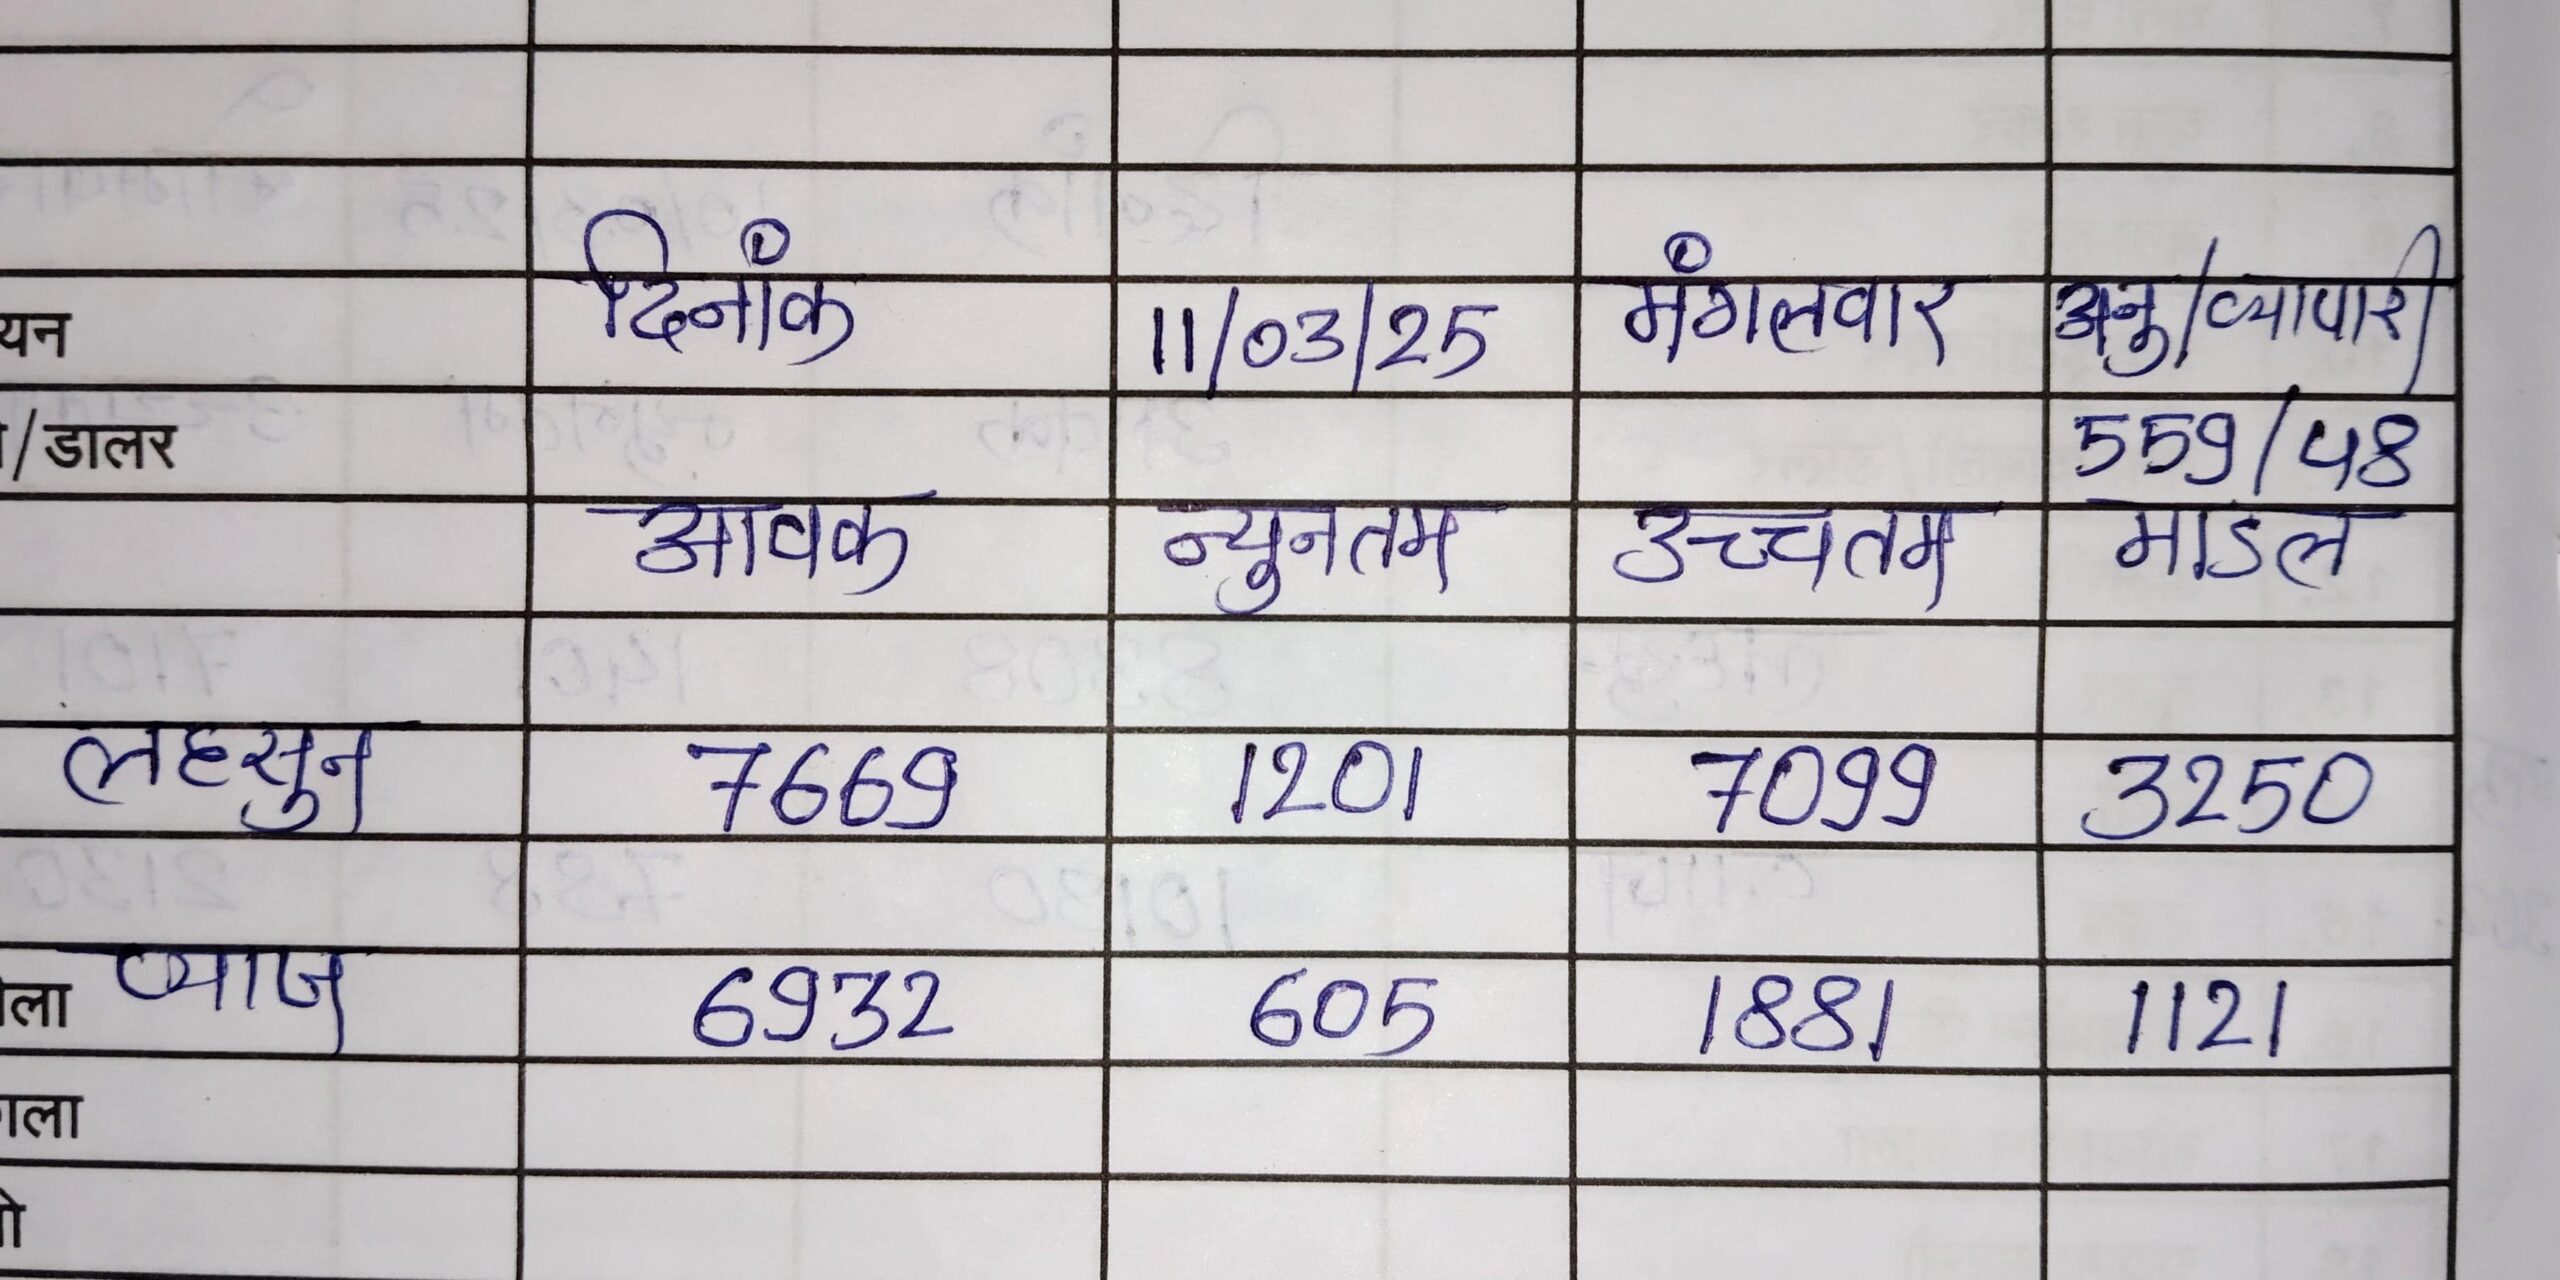 दिनांक 11/03/25 मंगलवार अनु/व्यापारी
यन
/डालर 559/48
आवक न्युनतम उच्चतम माडल
लहसुन 7669 1201 7099 3250
ला प्याज 6932 605 1881 1121
ला